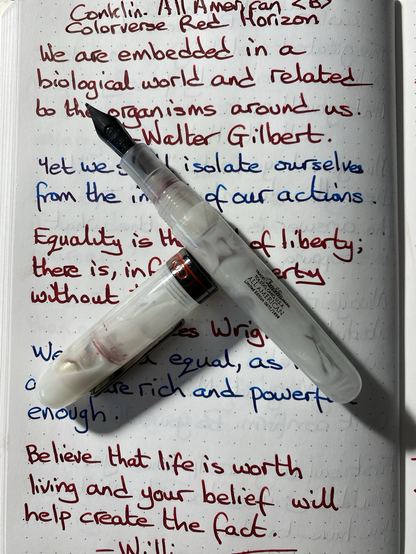 Conklin All American <B>
Colorverse Red Horizon
We are embedded in a
biological world and related
to the organisms around us.
-Walter Gilbert.
Yet we isolate ourselves
from the of our actions.
Equality is the of liberty;
there is, in
without
Wrig
We equal, as
rich and powerful
enough.
Believe that life is worth
living and your belief will
help create the fact.
-Willi
Conklin
ALL AMERICAN